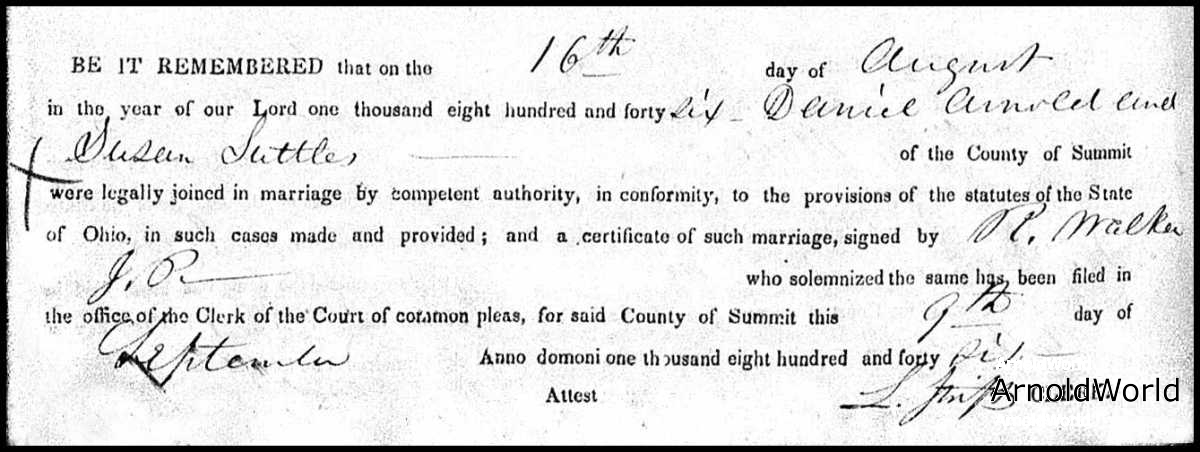 BE IT REMEMBERED that on the 16th day of August
in the year of our Lord one thousand eight hundred and forty six - Daniel Arnold and
Susan Suttles
of the County of Summit
were legally joined in marriage by competent authority, in conformity, to the provisions of the statutes of the State
of Ohio, in such cases made and provided; and a certificate of such marriage, signed by R. Walker
J. P. who solemnized the same has been filed in
the office of the Clerk of the Court of common pleas, for said County of Summit this 9th day of
September Anno domoni one thousand eight hundred and forty six
Attest L.
ArnoldWorld